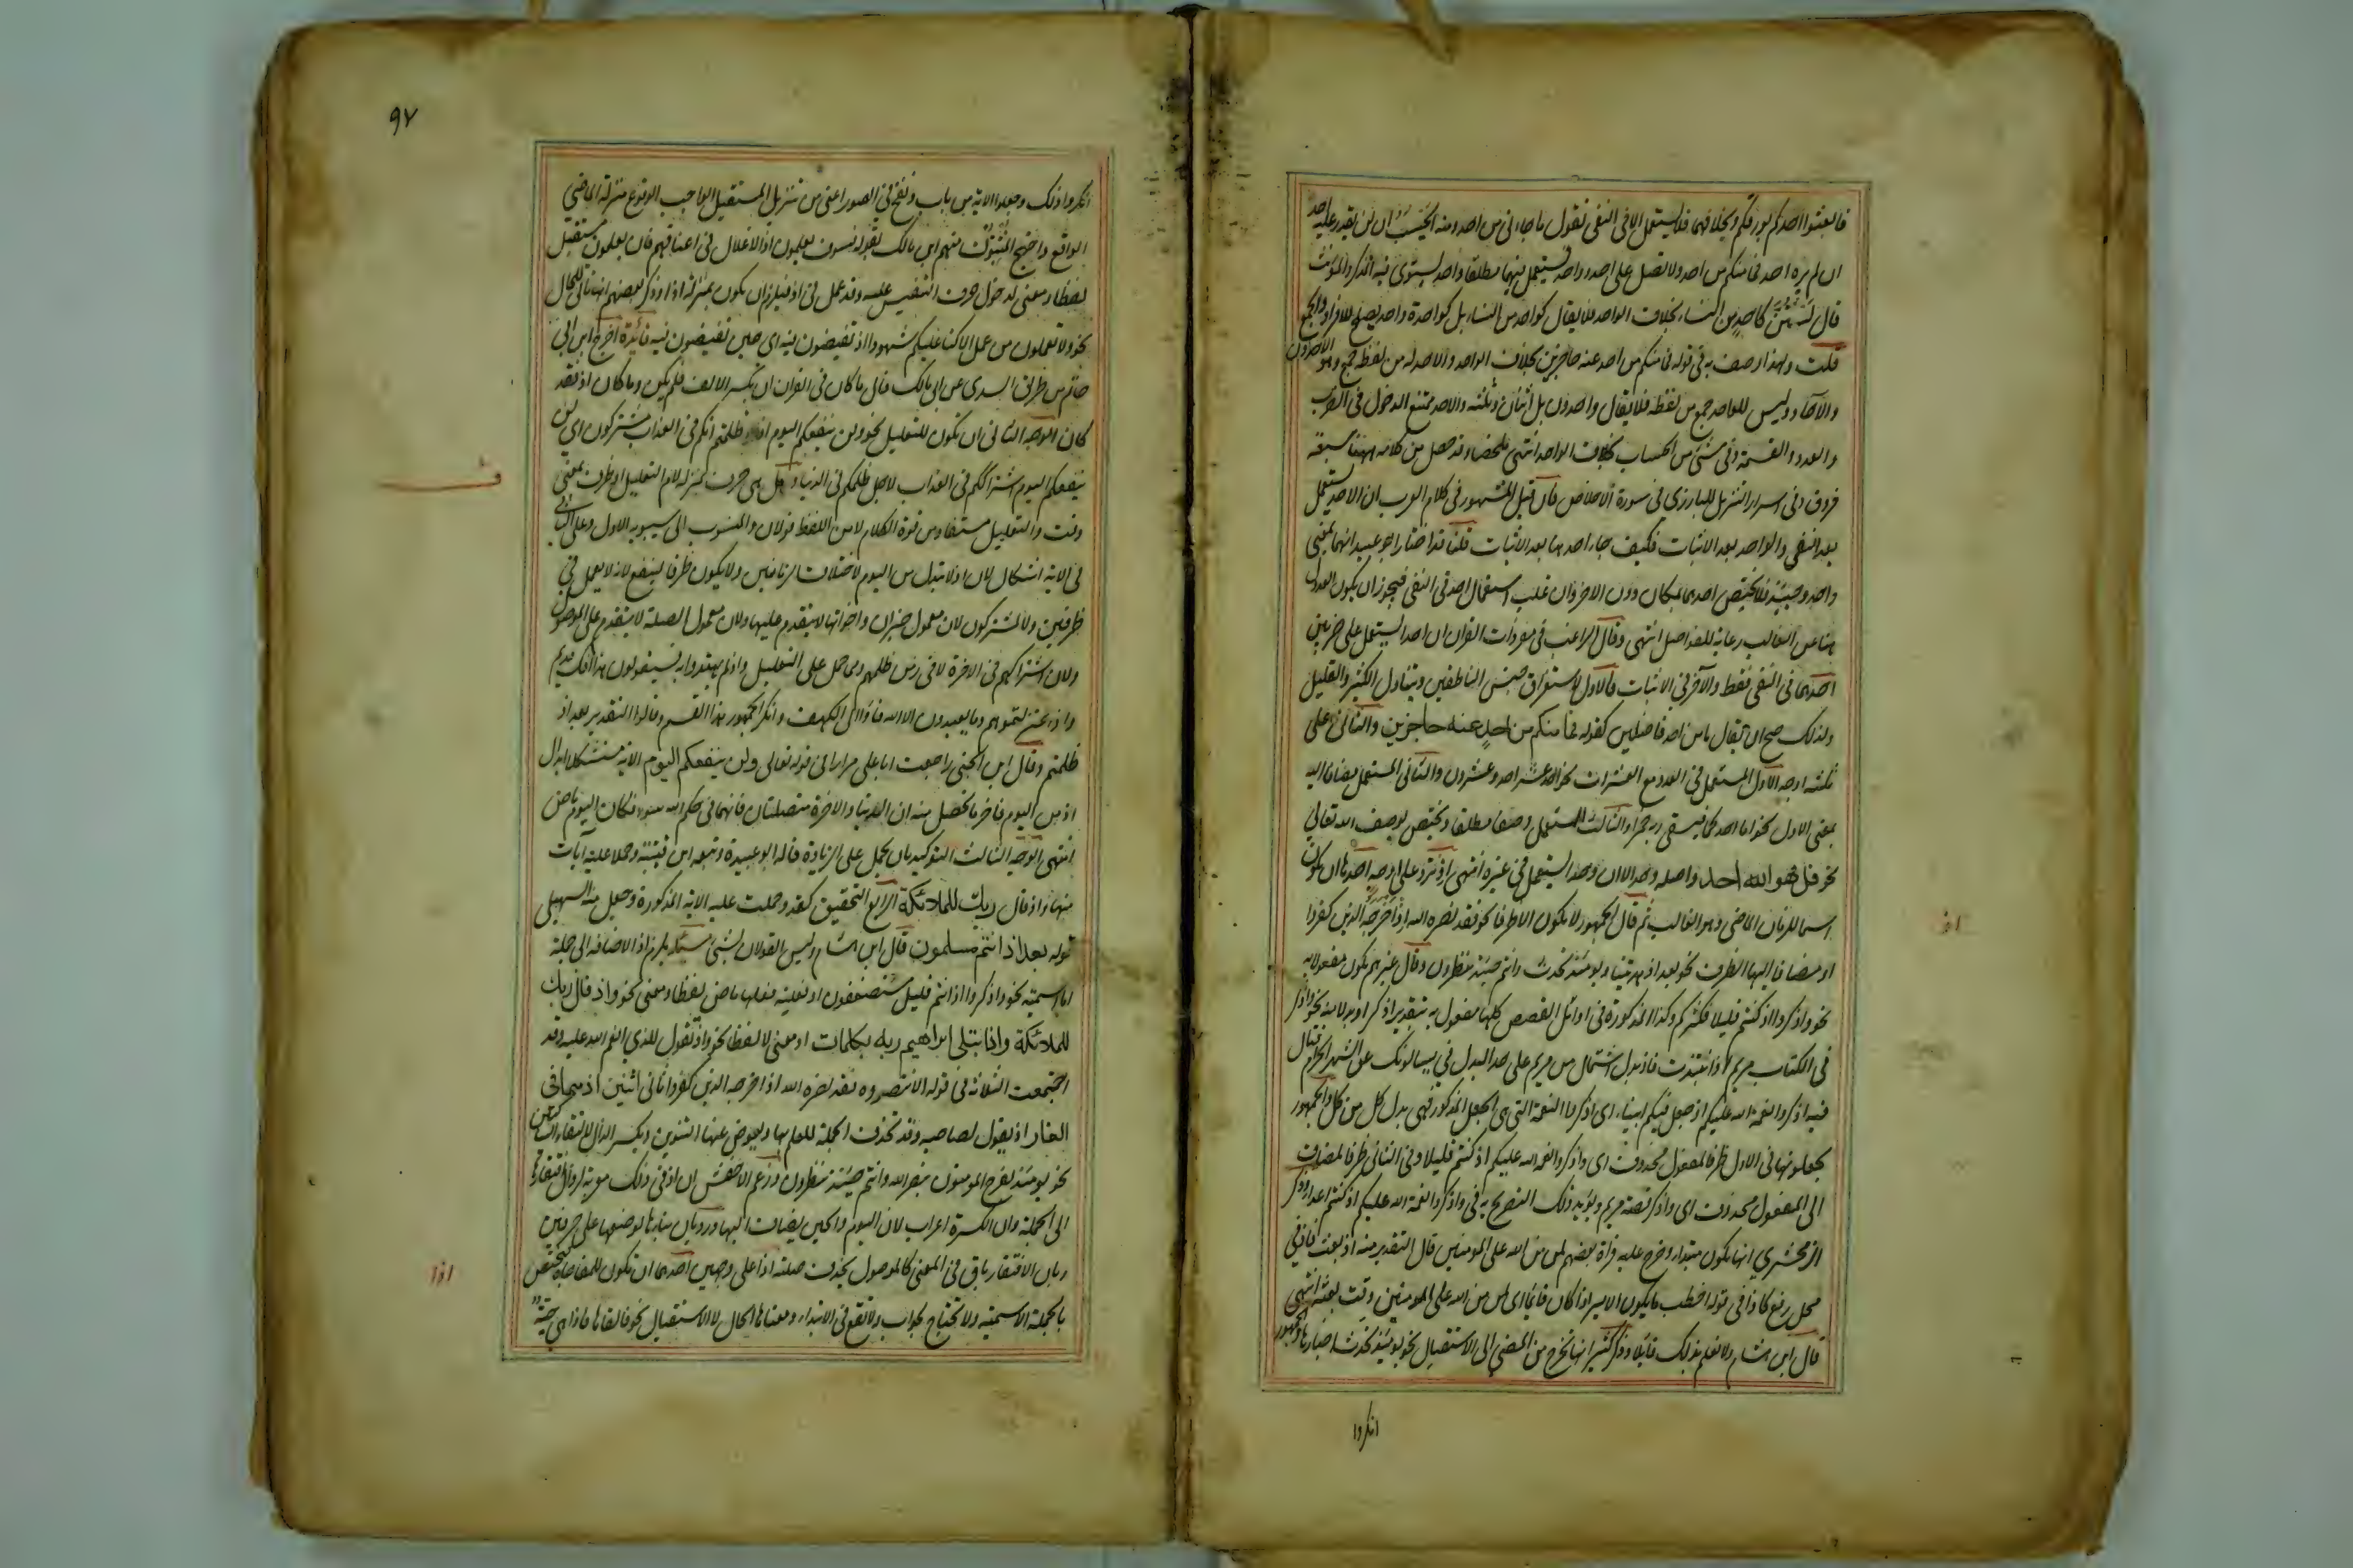 فابعثوا احدكم بورقكم وبخلافهما فلا يستعمل الا فى النفى تقول ما جاءنى من احد ومنه ايحسب ان لن يقدر عليه احد
ان لم يره احد فما منكم من احد ولا تصل على احد وواحد يستعمل فيهما مطلقا واحد يستوى فيه المذكر والمؤنث
قال لستن كاحد من النساء بخلاف الواحد فلا يقال كواحد من النساء بل كواحدة واحد يصلح للافراد والجمع
قلت ولهذا وصف به فى قوله فما منكم من احد عنه حاجزين بخلاف الواحد والاحد له جمع من لفظه وهو الاحدون
والآحاد وليس للواحد جمع من لفظه فلا يقال واحدون بل اثنان وثلثة والاحد ممتنع الدخول فى الضرب
والعدد والقسمة وفى شئ من الحساب بخلاف الواحد انتهى ملخصا وقد حصل من كلامه بينهما سبعة
فروق وفى اسرار التنزيل للبارزى فى سورة الاخلاص فان قيل المشهور فى كلام العرب ان الاحد يستعمل
بعد النفى والواحد بعد الاثبات فكيف جاء احد هنا بعد الاثبات قلنا قد اختار ابو عبيد انهما بمعنى
واحد وحينئذ فلا يختص احدهما بمكان دون الاخر وان غلب استعمال احد فى النفى فيجوز ان يكون العدول
هنا عن الغالب رعاية للفواصل انتهى وقال الراغب فى مفردات القران ان احد يستعمل على ضربين
احدهما فى النفى فقط والآخر فى الاثبات فالاول لاستغراق جنس الناطقين ويتناول الكثير والقليل
ولذلك صح ان يقال ما من احد فاضلين كقوله فما منكم من احد عنه حاجزين والثانى على
ثلثة اوجه الاول المستعمل فى العدد مع العشرات نحو احد عشر احد وعشرون والثانى المستعمل مضافا اليه
بمعنى الاول نحو اما احدكما فيسقى ربه خمرا والثالث المستعمل وصفا مطلقا ويختص بوصف الله تعالى
نحو قل هو الله احد واصله وحد الا ان وحد يستعمل فى غيره انتهى اذ ترد على اوجه احدها ان تكون
اسما للزمان الماضى وهو الغالب ثم قال الجمهور لا تكون الا ظرفا نحو فقد نصره الله اذ اخرجه الذين كفروا
او مضافا اليها الظرف نحو بعد اذ هديتنا ويومئذ تحدث وانتم حينئذ تنظرون وقال غيرهم تكون مفعولا به
نحو واذكروا اذ كنتم قليلا فكثركم وكذا المذكورة فى اوائل القصص كلها مفعول به بتقدير اذكر او بدلا منه نحو واذكر
فى الكتاب مريم اذ انتبذت فاذ بدل اشتمال من مريم على حد البدل فى يسالونك عن الشهر الحرام قتال
فيه اذكروا نعمة الله عليكم اذ جعل فيكم انبياء اى اذكروا النعمة التى هى الجعل المذكور فهى بدل كل من كل والجمهور
يجعلونها فى الاول ظرفا لمفعول محذوف اى واذكروا نعمة الله عليكم اذ كنتم قليلا وفى الثانى ظرفا لمضاف
الى المفعول محذوف اى واذكر قصة مريم ويؤيد ذلك التصريح به فى واذكروا نعمة الله عليكم اذ كنتم اعداء وذكر
الزمخشرى انها تكون مبتداء وخرج عليه قراة بعضهم لمن من الله على المومنين قال التقدير منه اذ بعث فاذ فى
محل رفع كاذا فى قولك اخطب ما يكون الامير اذا كان قائما اى لمن من الله على المومنين وقت بعثه انتهى
قال ابن هشام ولا نعلم بذلك قائلا وذكر كثير انها تخرج من المضى الى الاستقبال نحو يومئذ تحدث اخبارها والجمهور
انكروا
اذ
٩٧
انكروا ذلك وجعلوا الآية من باب ونفخ فى الصور اعنى من تنزيل المستقبل الواجب الوقوع منزلة الماضى
الواقع واحتج المثبتون منهم ابن مالك بقوله فسوف يعلمون اذ الاغلال فى اعناقهم فان يعلمون مستقبل
لفظا ومعنى لدخول حرف التنفيس عليه وقد عمل فى اذ فيلزم ان يكون بمنزلة اذا وذكر بعضهم انها تاتى للحال
نحو ولا تعملون من عمل الا كنا عليكم شهودا اذ تفيضون فيه اى حين تفيضون فيه فائدة اخرج ابن ابى
حاتم من طريق السدى عن ابى مالك قال ما كان فى القران ان بكسر الالف فلم يكن وما كان اذ فقد
كان الوجه الثانى ان تكون للتعليل نحو ولن ينفعكم اليوم اذ ظلمتم انكم فى العذاب مشتركون اى لن
ينفعكم اليوم اشتراككم فى العذاب لاجل ظلمكم فى الدنيا وهل هى حرف بمنزلة لام التعليل او ظرف بمعنى
وقت والتعليل مستفاد من قوة الكلام لا من اللفظ قولان والمنسوب الى سيبويه الاول وعلى الثانى
فى الآية اشكال لان اذ لا تبدل من اليوم لاختلاف الزمانين ولا يكون ظرفا لينفع لانه لا يعمل فى
ظرفين ولا لمشتركون لان معمول خبر ان واخواتها لا يتقدم عليها ولان معمول الصلة لا يتقدم على الموصول
ولان اشتراكهم فى الآخرة لا فى زمن ظلمهم ومما حمل على التعليل واذ لم يهتدوا به فسيقولون هذا افك قديم
واذ اعتزلتموهم وما يعبدون الا الله فاووا الى الكهف وانكر الجمهور هذا القسم وقالوا التقدير بعد اذ
ظلمتم وقال ابن الجنى راجعت ابا على مرارا فى قوله تعالى ولن ينفعكم اليوم الآية مستشكلا ابدال
اذ من اليوم فاخر ما تحصل منه ان الدنيا والآخرة متصلتان فانهما فى حكم الله سواء فكان اليوم ماض
انتهى الوجه الثالث التوكيد بان تحمل على الزيادة قاله ابو عبيدة وتبعه ابن قتيبة وحملا عليه آيات
منها واذ قال ربك للملائكة الرابع التحقيق كقد وحملت عليه الآية المذكورة وجعل منه السهيلى
قوله بعد اذ انتم مسلمون قال ابن هشام وليس القولان بشئ مسئلة يلزم اذ الاضافة الى جملة
اما اسمية نحو واذكروا اذ انتم قليل مستضعفون او فعلية فعلها ماض لفظا ومعنى نحو واذ قال ربك
للملائكة واذ ابتلى ابراهيم ربه بكلمات او معنى لا لفظا نحو واذ تقول للذى انعم الله عليه وقد
اجتمعت الثلاثة فى قوله الا تنصروه فقد نصره الله اذ اخرجه الذين كفروا ثانى اثنين اذ هما فى
الغار اذ يقول لصاحبه وقد تحذف الجملة للعلم بها ويعوض عنها التنوين وبكسر الذال لالتقاء الساكنين
نحو يومئذ يفرح المومنون بنصر الله وانتم حينئذ تنظرون وزعم الاخفش ان اذ فى ذلك معربة لزوال افتقارها
الى الجملة وان الكسرة اعراب لان اليوم والحين يضاف اليها ورد بان بناءها لوضعها على حرفين
وبان الافتقار باق فى المعنى كالموصول تحذف صلته اذا على وجهين احدهما ان تكون للمفاجاة فتختص
بالجملة الاسمية ولا تحتاج لجواب ولا تقع فى الابتداء ومعناها الحال لا الاستقبال نحو فالقاها فاذا هى حية
ف
اذا